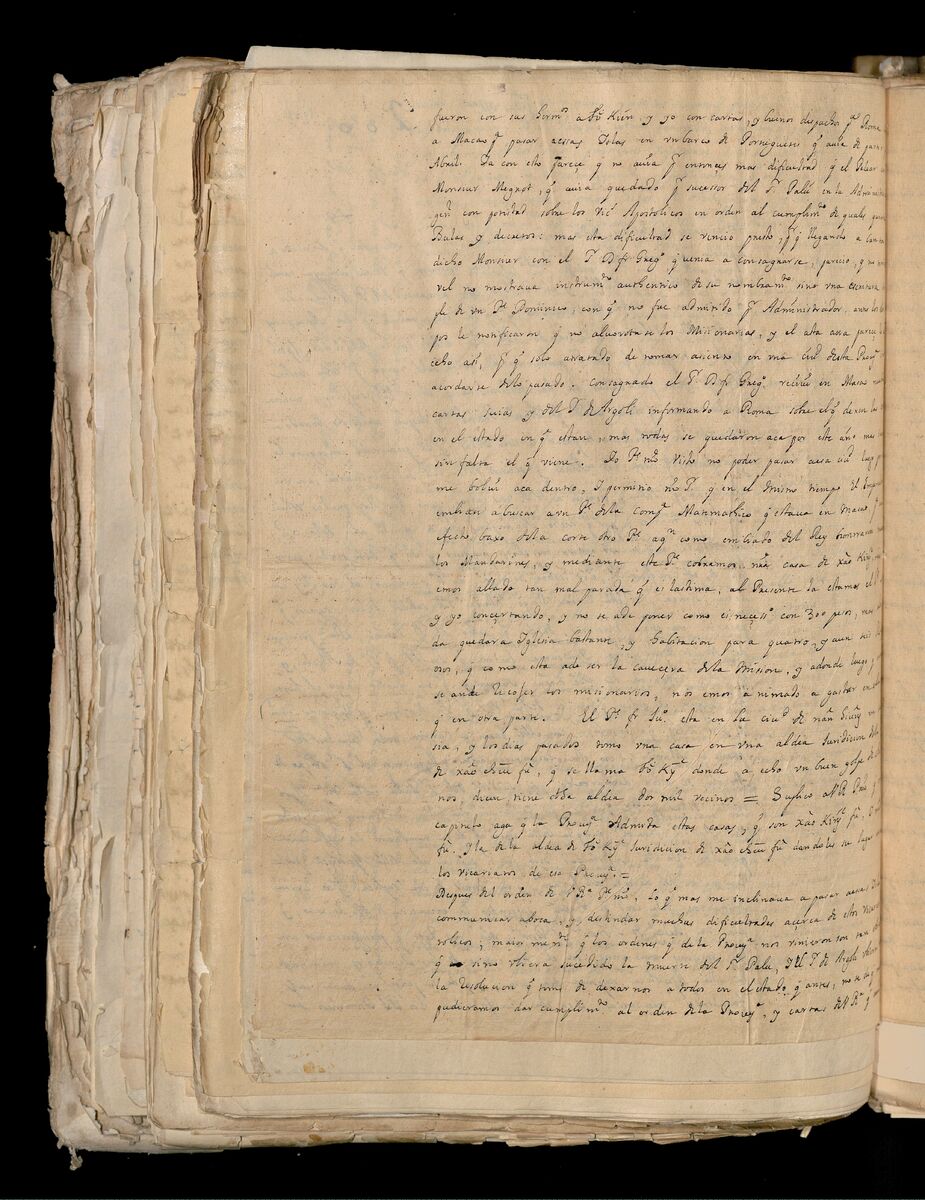 fueron con sus herm.os a fŏ Kién y yo con cartas, y buenos despachos p.a Roma
a Macao p.a pasar a essas Islas en un barco de Portugueses q̃ avia de
Abril. Ya con esto parece q̃ no avia p.r entonces mas dificultad q̃ el
Monsiur Megrot, q̃ avia quedado p.r sucessor del S.r Palú en la Admi
gen.l con potestad sobre los Vic.s Apostolicos en orden al cumplim.to de
Bulas y decretos: mas esta dificultad se vencio presto, p.r q̃ llegando a
dicho Monsiur con el S.r D. fr Greg.o q̃ venia a consagrarse, parecio, q̃ no
rel no mostrava instrum.to authentico de su nombram.to sino una escritura
ple de un P.e Dominico, con q̃ no fue admitido p.r Administrador, antes los
pos le notificaron q̃ no alvorotase los Misionarios, y el asta aora parece
echo asi, p.r q̃ solo a tratado de tomar asiento en una ciu.d desta Prov.a
acordarse delo pasado. Consagrado el S.r D. fr Greg.o recivi en Macao
cartas suias y del S.r de Argoli informando a Roma sobre el q̃ dexen las
en el estado en q̃ estan, mas todas se quedaron aca por este año mas
sin falta el q̃ viene. Yo P.e n.ro visto no poder pasar a esa ciu.d luego
me bolvi aca dentro, y permitio n.ro S.r q̃ en el mismo tiempo el Emp
embiase a buscar a un P.e dela Comp.a Matematico q̃ estava en Macao, y
efecto baxo dela corte otro P.e aq.n como embiado del Rey honrraron
los Mandarines, y mediante este P.e cobramos n.ra casa de xáo Kin,
emos allado tan mal parada q̃ es lastima, al Presente la estamos el P.
y yo concertando, y no se ade poner como es necess.o con 300 pesos,
da quedara Iglesia bastante, y habitacion para quatro, y aun seis
osos, y como esta ade ser la caveçera dela Mision, y adonde luego
se ande recoger los misionarios, nos emos animado a gastar en
q̃ en otra parte. El P.e fr Ju.o esta en la ciu.d de nân hiung
sia, y los dias pasados tomo una casa en una aldea Juridicion dela
de xáo cheu fù, q̃ se llama fŏ Ky donde a echo un buen golpe de
nos, dicen tiene esta aldea dos mil vecinos = Suplico a V. R. Pida
capitulo aga q̃ la Prov.a Admita estas casas, q̃ son xáo King fù,
fù. Y la de la aldea de fŏ Ky Juridicion de xáo cheu fù dandoles su lugar
los vicariatos de esa Prov.a =
Despues del orden de V. R.a P.e n.ro, Lo q̃ mas me inclinava a pasar a esas
communicar aboca, y deslindar muchas dificultades açerca de estos
tolicos; maiormen.te q̃ los ordenes q̃ de la Prov.a nos vinieron son tan
q̃ a sino ubiera sucedido la muerte del S.r Palu, y el S.r de Argoli
la resolucion q̃ tomo de dexarnos a todos en el estado q̃ antes, no se
pudieramos dar cumplim.to al orden dela Prov.a, y cartas de V. R.a